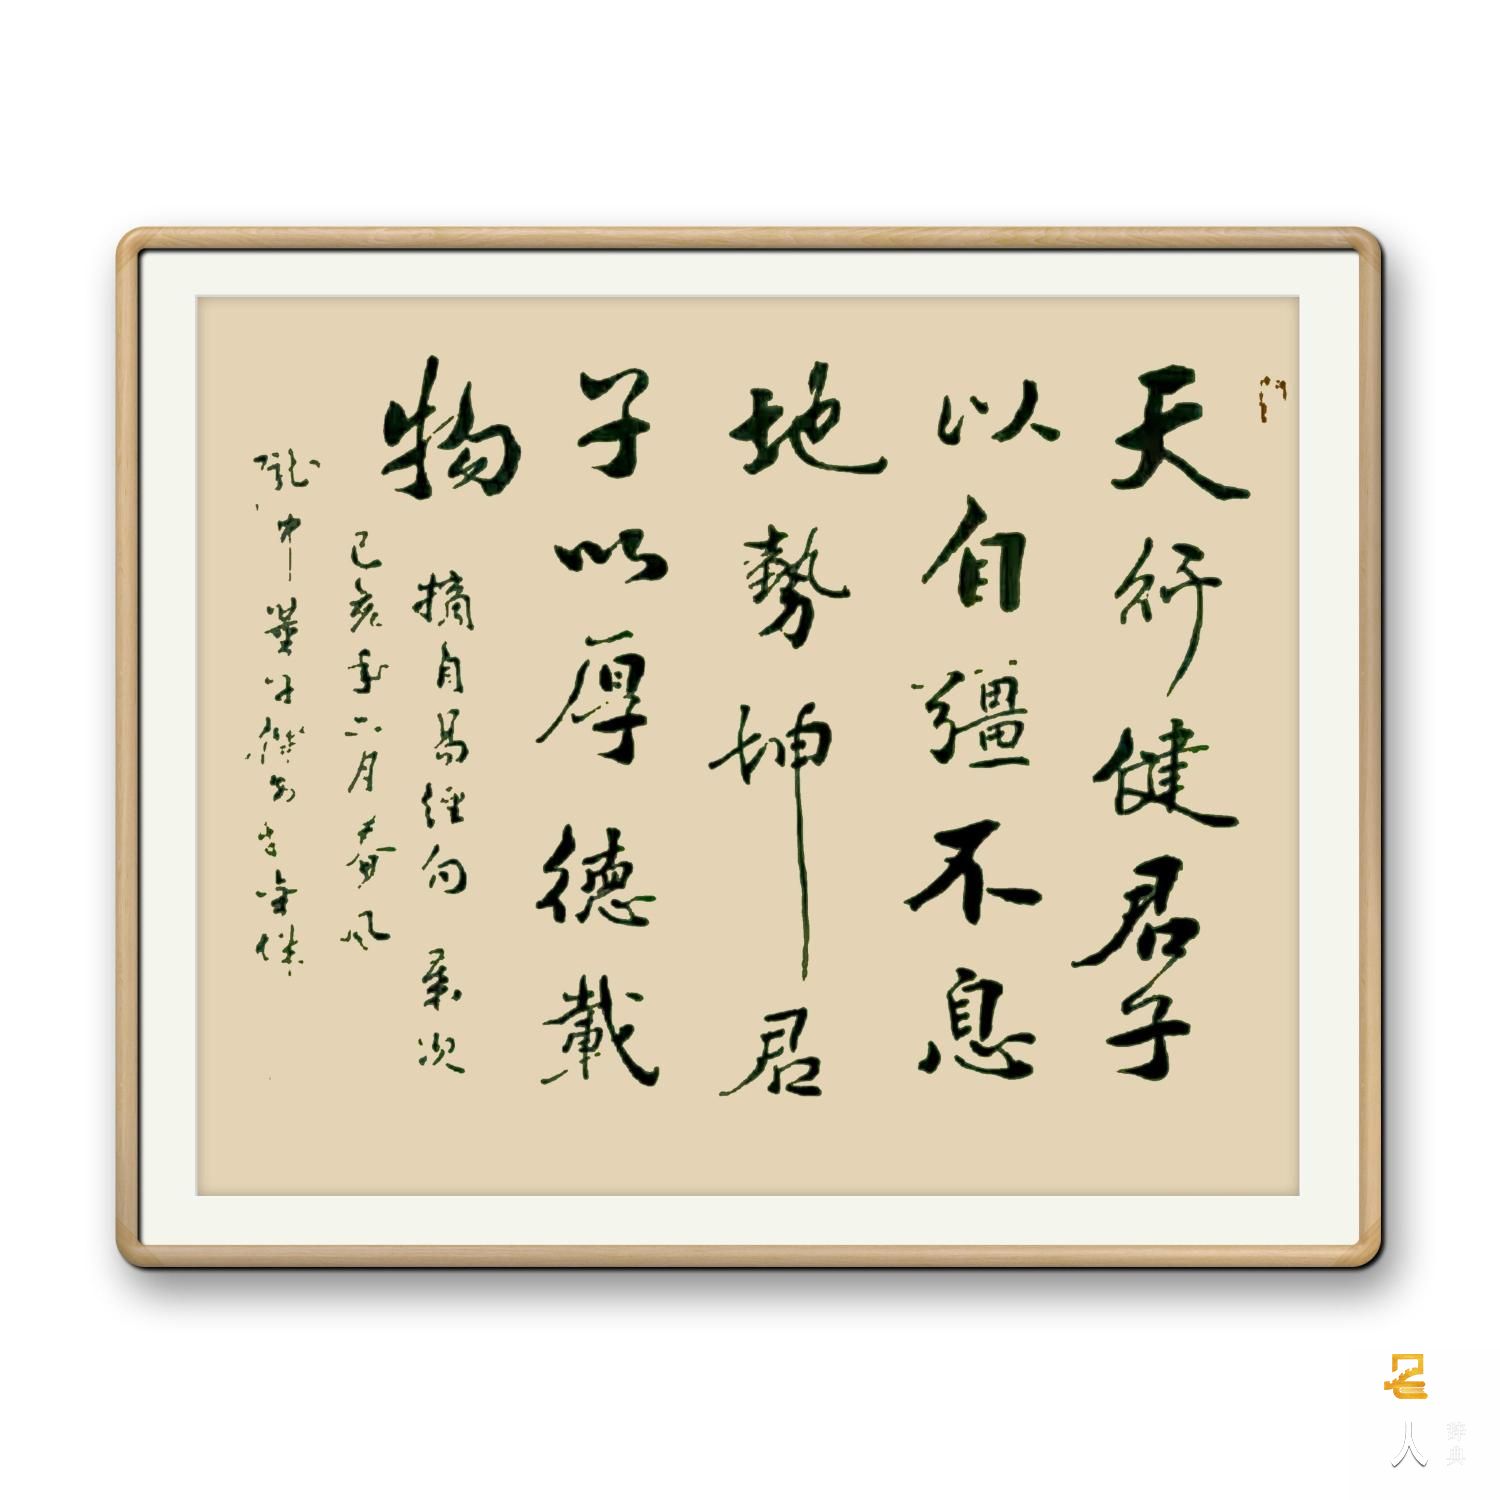 天行健君子
以自彊不息
地勢坤君
子以厚德載
物
摘自易經句 歲次
己亥年二月春風
隴中
人
辞典